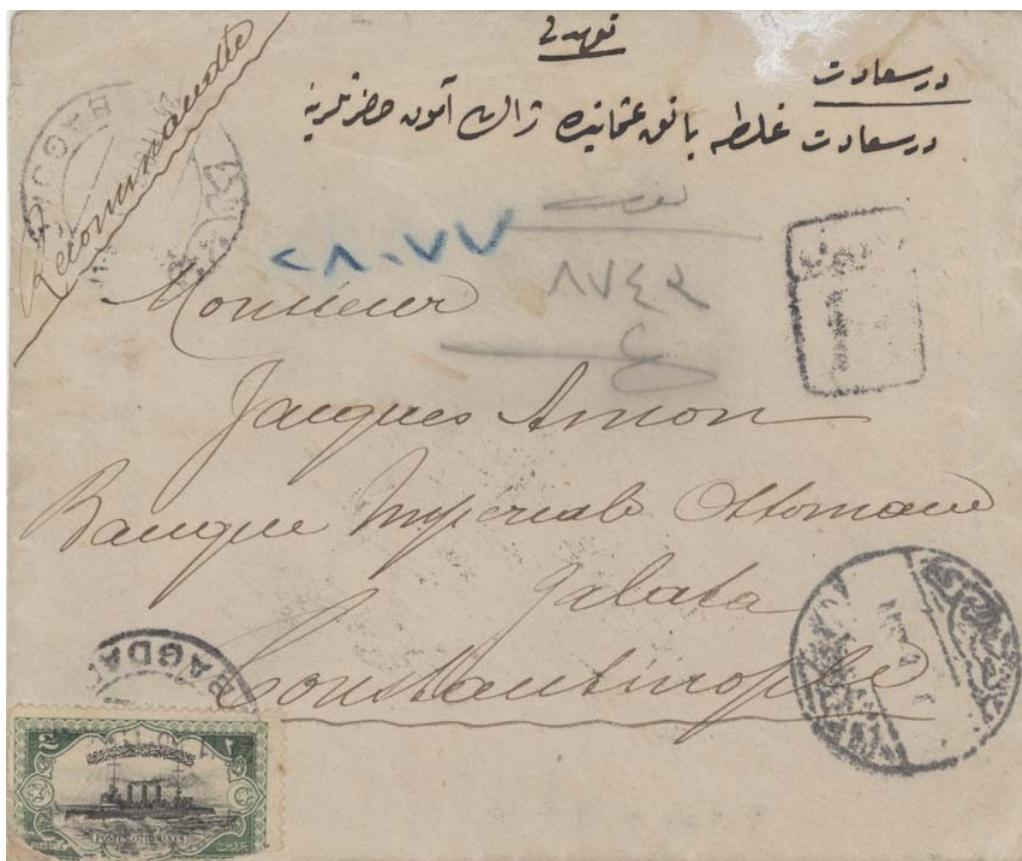 Recommandée
تعهدلی
درسعادت
درسعادت غلطه بانق عثمانیده ژاك آمون حضرتلرینه
٢٨٠٧٧
٨٧٤٢
Monsieur
Jacques Amon
Banque Impériale Ottomane
Galata
Constantinople
BAGDAD
BAGDA
2 ٢
POSTES OTTOMANES